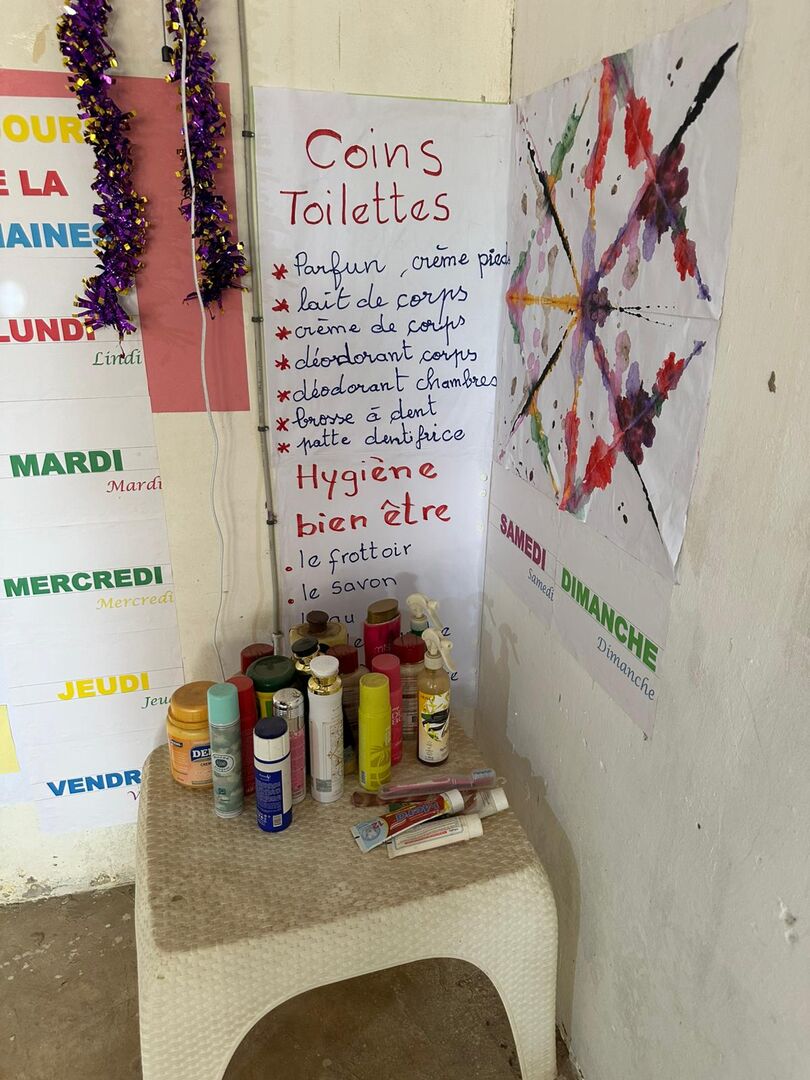 JOUR
E LA
MAINES
LUNDI
Lindi
MARDI
Mardi
MERCREDI
Mercredi
JEUDI
Jeu
VENDR
V
Coins
Toilettes
* Parfun, crème pied
* lait de corps
* crème de corps
* déodorant corps
* déodorant chambres
* brosse à dent
* patte dentifrice
Hygiène
bien être
. le frottoir
. le savon
SAMEDI
Samedi
DIMANCHE
Dimanche